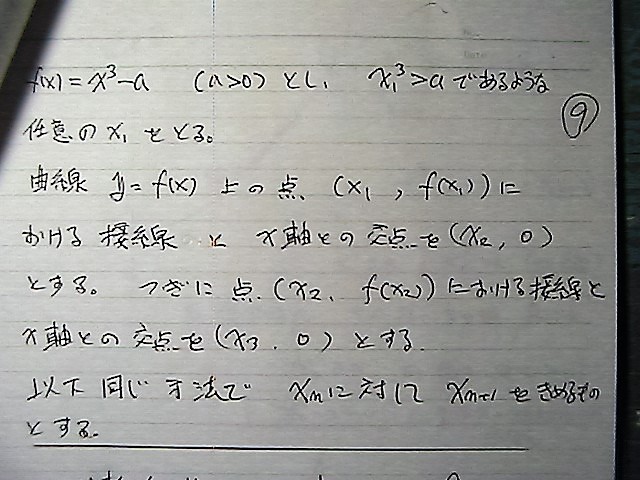 f(x) = x³-a (a>0) とし、 x₁³>a であるような
⑨
任意の x₁ をとる。
曲線 y=f(x) 上の点 (x₁, f(x₁)) に
おける 接線 と x軸との 交点を (x₂, 0)
とする。 つぎに 点 (x₂, f(x₂)) における接線と
x軸との 交点を (x₃, 0) とする
以下 同じ 手法で xₙに対して xₙ₊₁ をきめるもの
とする。